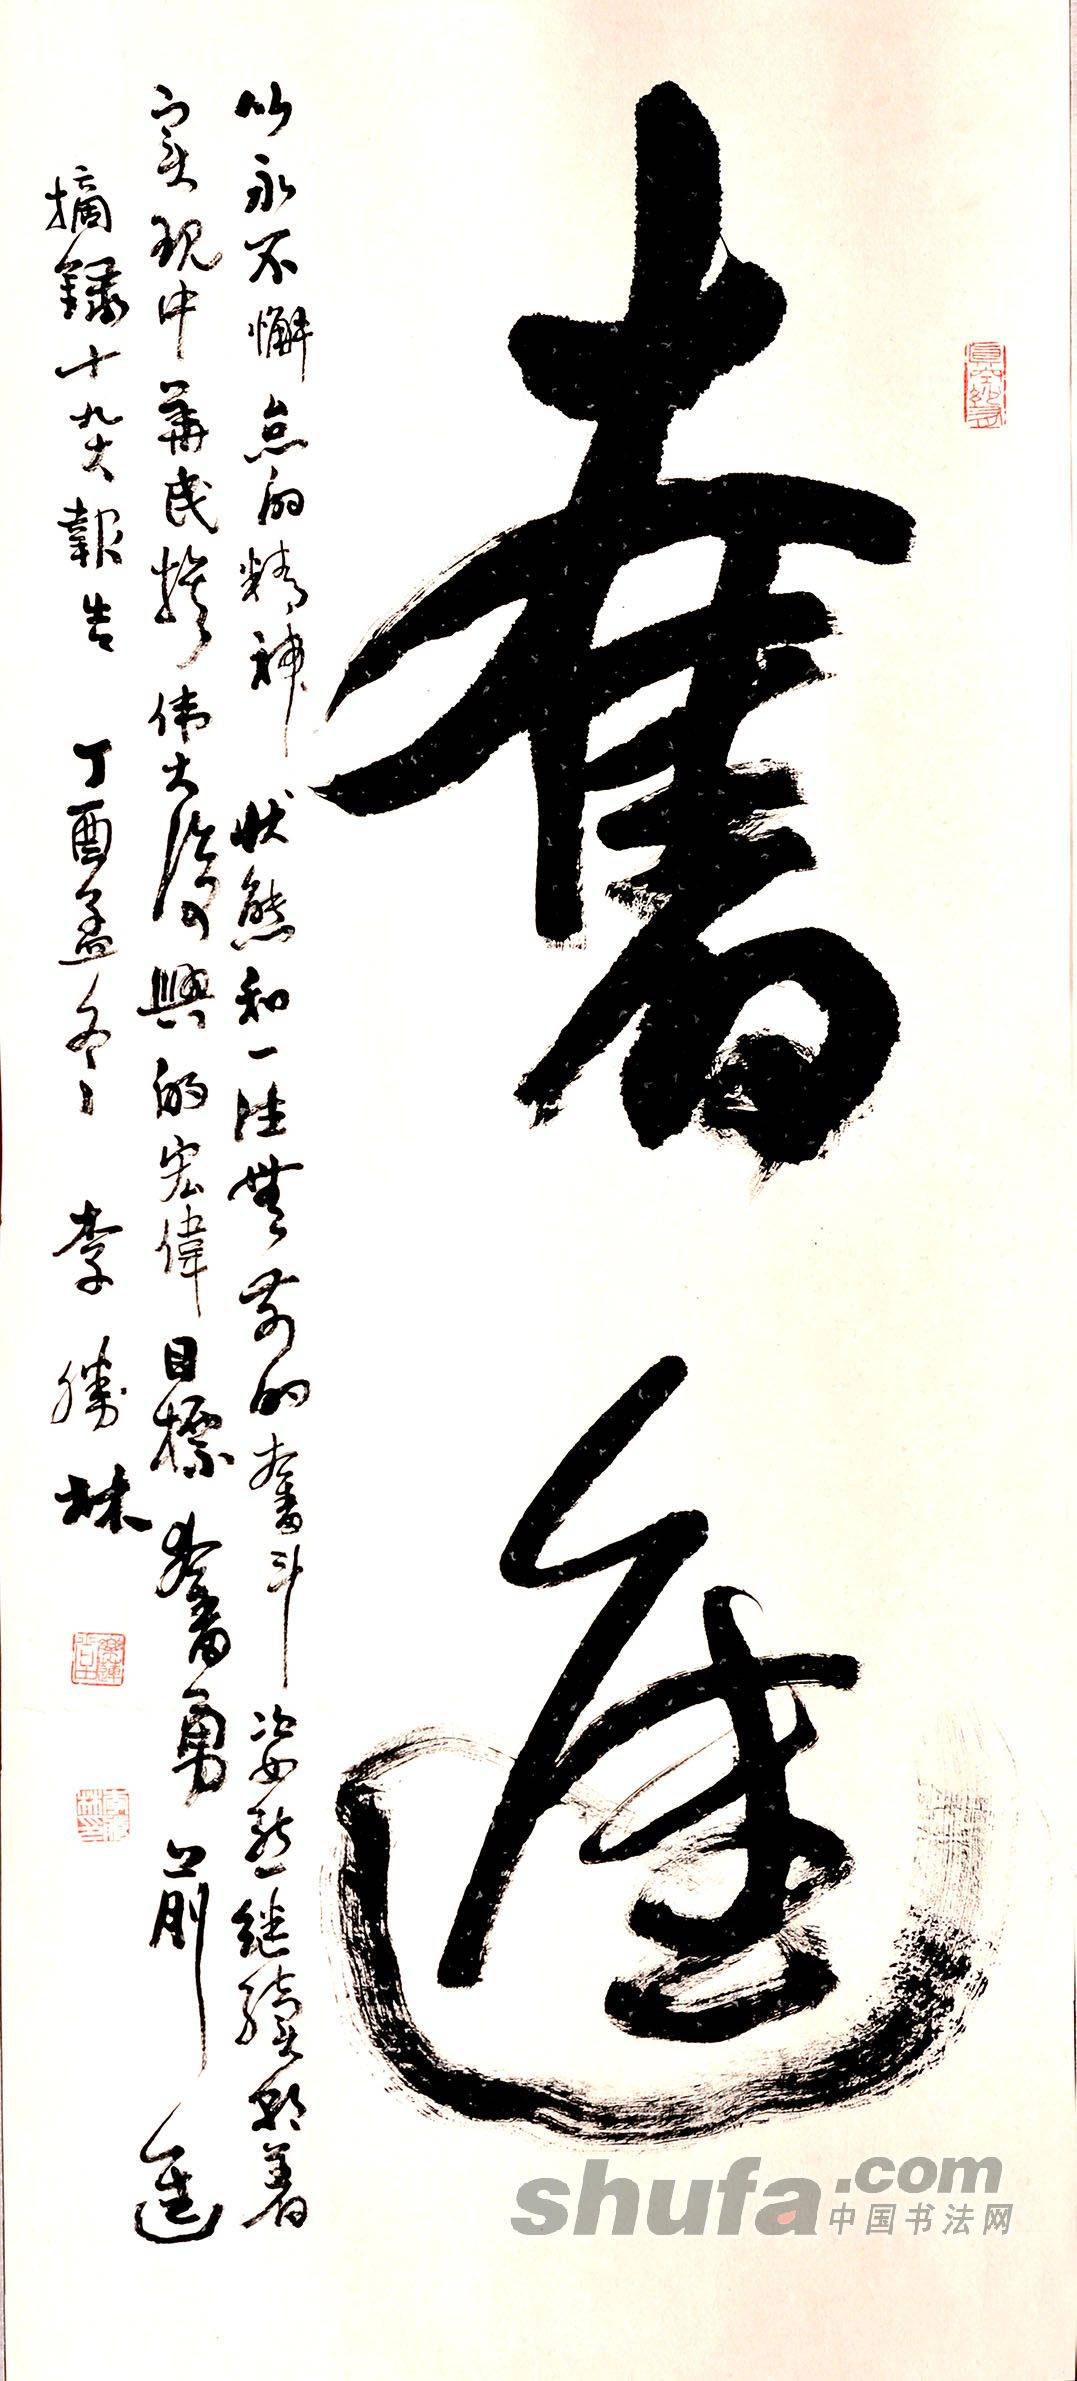 奮進
以永不懈怠的精神状態和一往無前的奮斗姿態继續朝着
实现中華民族伟大復興的宏偉目標奮勇前進
摘録十九大報告 丁酉孟冬 李勝林
shufa.com
中国书法网